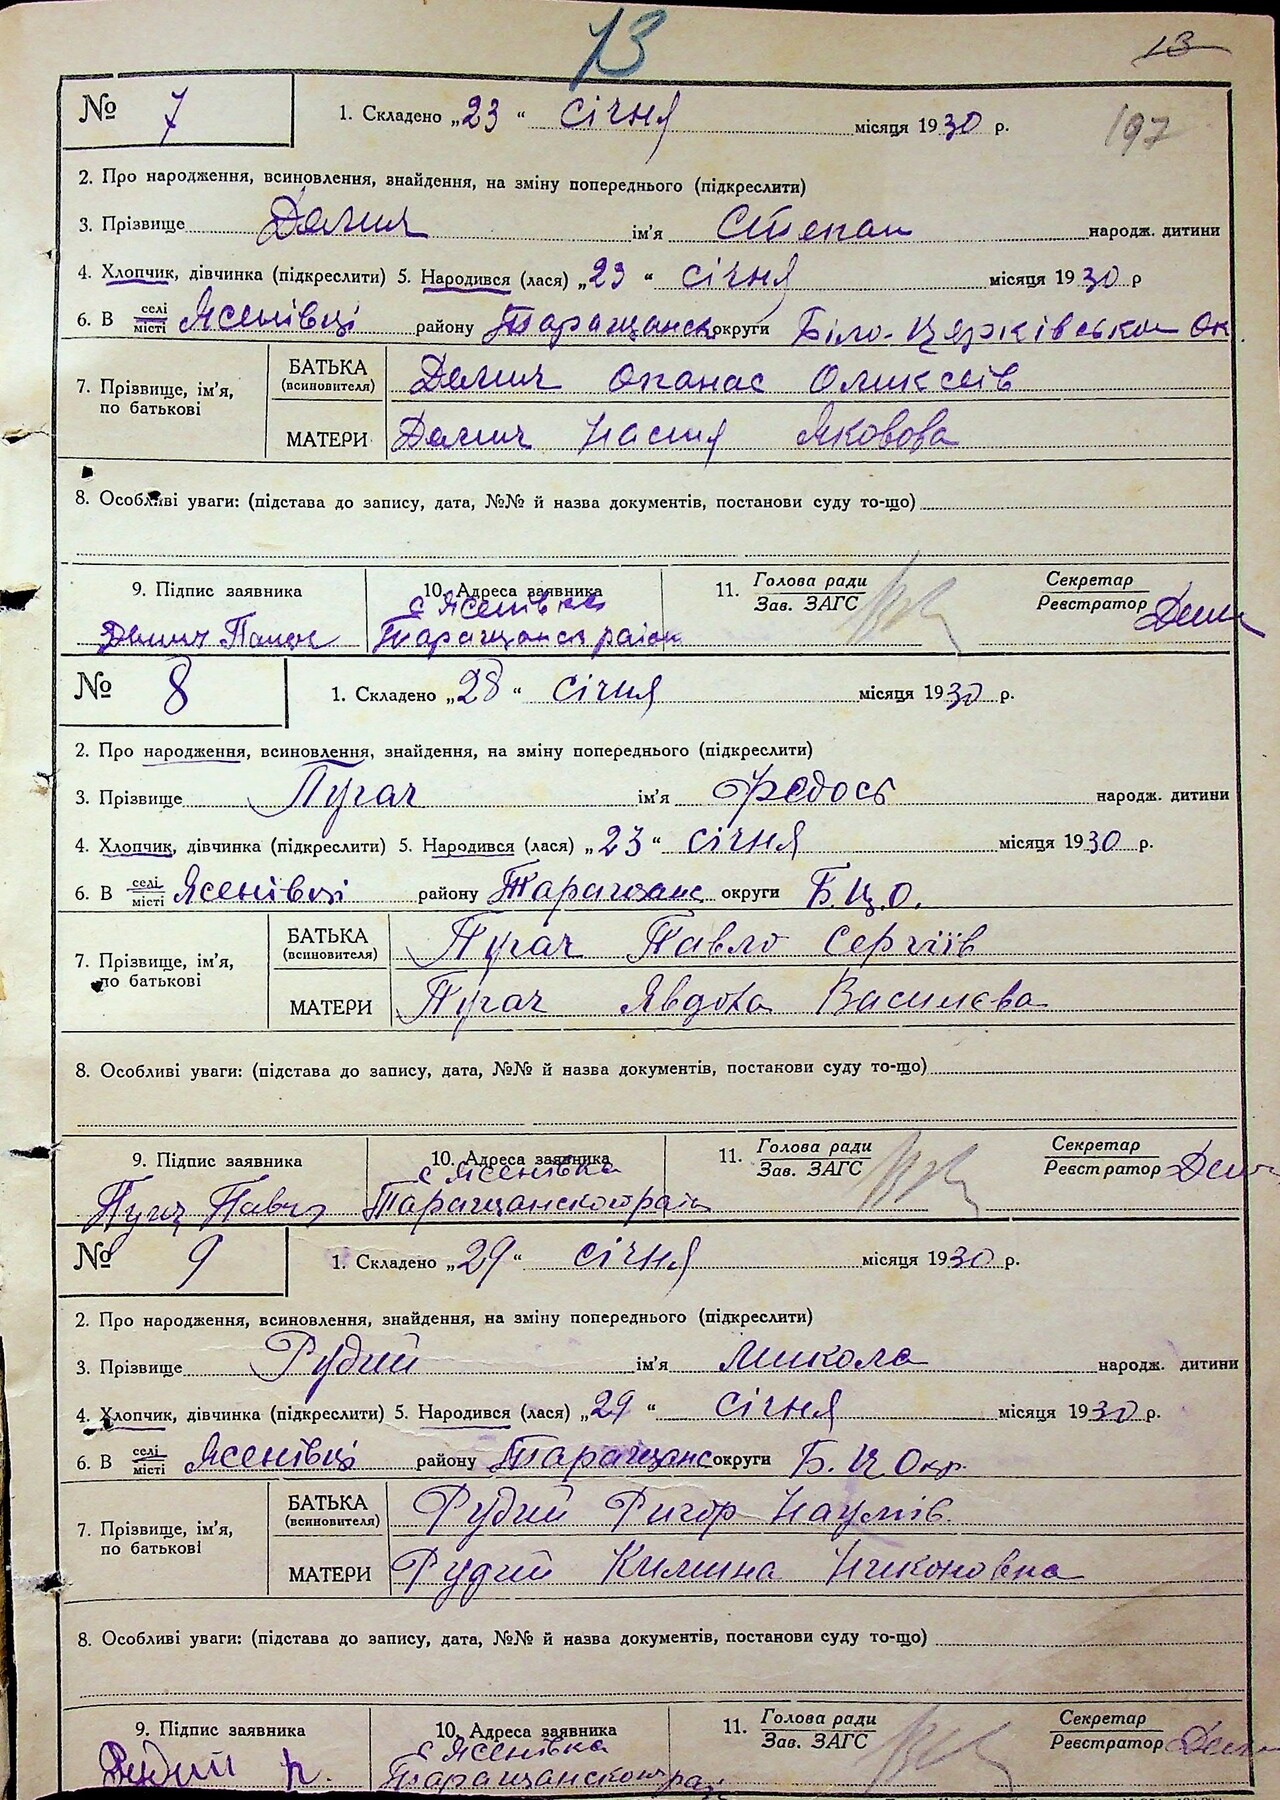 13
13
№ 7 1. Складено „23“ січня місяця 1930 р.
197
2. Про народження, всиновлення, знайдення, на зміну попереднього (підкреслити)
3. Прізвище ім'я Степан народж. дитини
4. Хлопчик, дівчинка (підкреслити) 5. Народився (лася) „23“ січня місяця 1930 р
6. В селі/місті Ясенівці району Таращанск округи Біло-Церківської Ок
7. Прізвище, ім'я, по батькові
БАТЬКА (всиновителя) Опанас Олексіїв
МАТЕРИ Настя Яковова
8. Особливі уваги: (підстава до запису, дата, №№ й назва документів, постанови суду то-що)
9. Підпис заявника 10. Адреса заявника 11. Голова ради Секретар
Зав. ЗАГС Реєстратор
с Ясенівка
Таращанск район
№ 8 1. Складено „28“ січня місяця 1930 р.
2. Про народження, всиновлення, знайдення, на зміну попереднього (підкреслити)
3. Прізвище Пугач ім'я Федось народж. дитини
4. Хлопчик, дівчинка (підкреслити) 5. Народився (лася) „23“ січня місяця 1930 р.
6. В селі/місті Ясенівці району Таращанс округи Б.Ц.О.
7. Прізвище, ім'я, по батькові
БАТЬКА (всиновителя) Пугач Павло Сергіїв
МАТЕРИ Пугач Явдоха Василєва
8. Особливі уваги: (підстава до запису, дата, №№ й назва документів, постанови суду то-що)
9. Підпис заявника 10. Адреса заявника 11. Голова ради Секретар
Зав. ЗАГС Реєстратор
с Ясенівка
Пугач Павло Таращанского рай
№ 9 1. Складено „29“ січня місяця 1930 р.
2. Про народження, всиновлення, знайдення, на зміну попереднього (підкреслити)
3. Прізвище Рудий ім'я Микола народж. дитини
4. Хлопчик, дівчинка (підкреслити) 5. Народився (лася) „29“ січня місяця 1930 р.
6. В селі/місті Ясенівці району Таращанс округи Б. Ц Окр.
7. Прізвище, ім'я, по батькові
БАТЬКА (всиновителя) Рудий Ригор Наумів
МАТЕРИ Рудий Килина Никоновна
8. Особливі уваги: (підстава до запису, дата, №№ й назва документів, постанови суду то-що)
9. Підпис заявника 10. Адреса заявника 11. Голова ради Секретар
Зав. ЗАГС Реєстратор
с Ясенівка
Рудий р. Таращанского рай